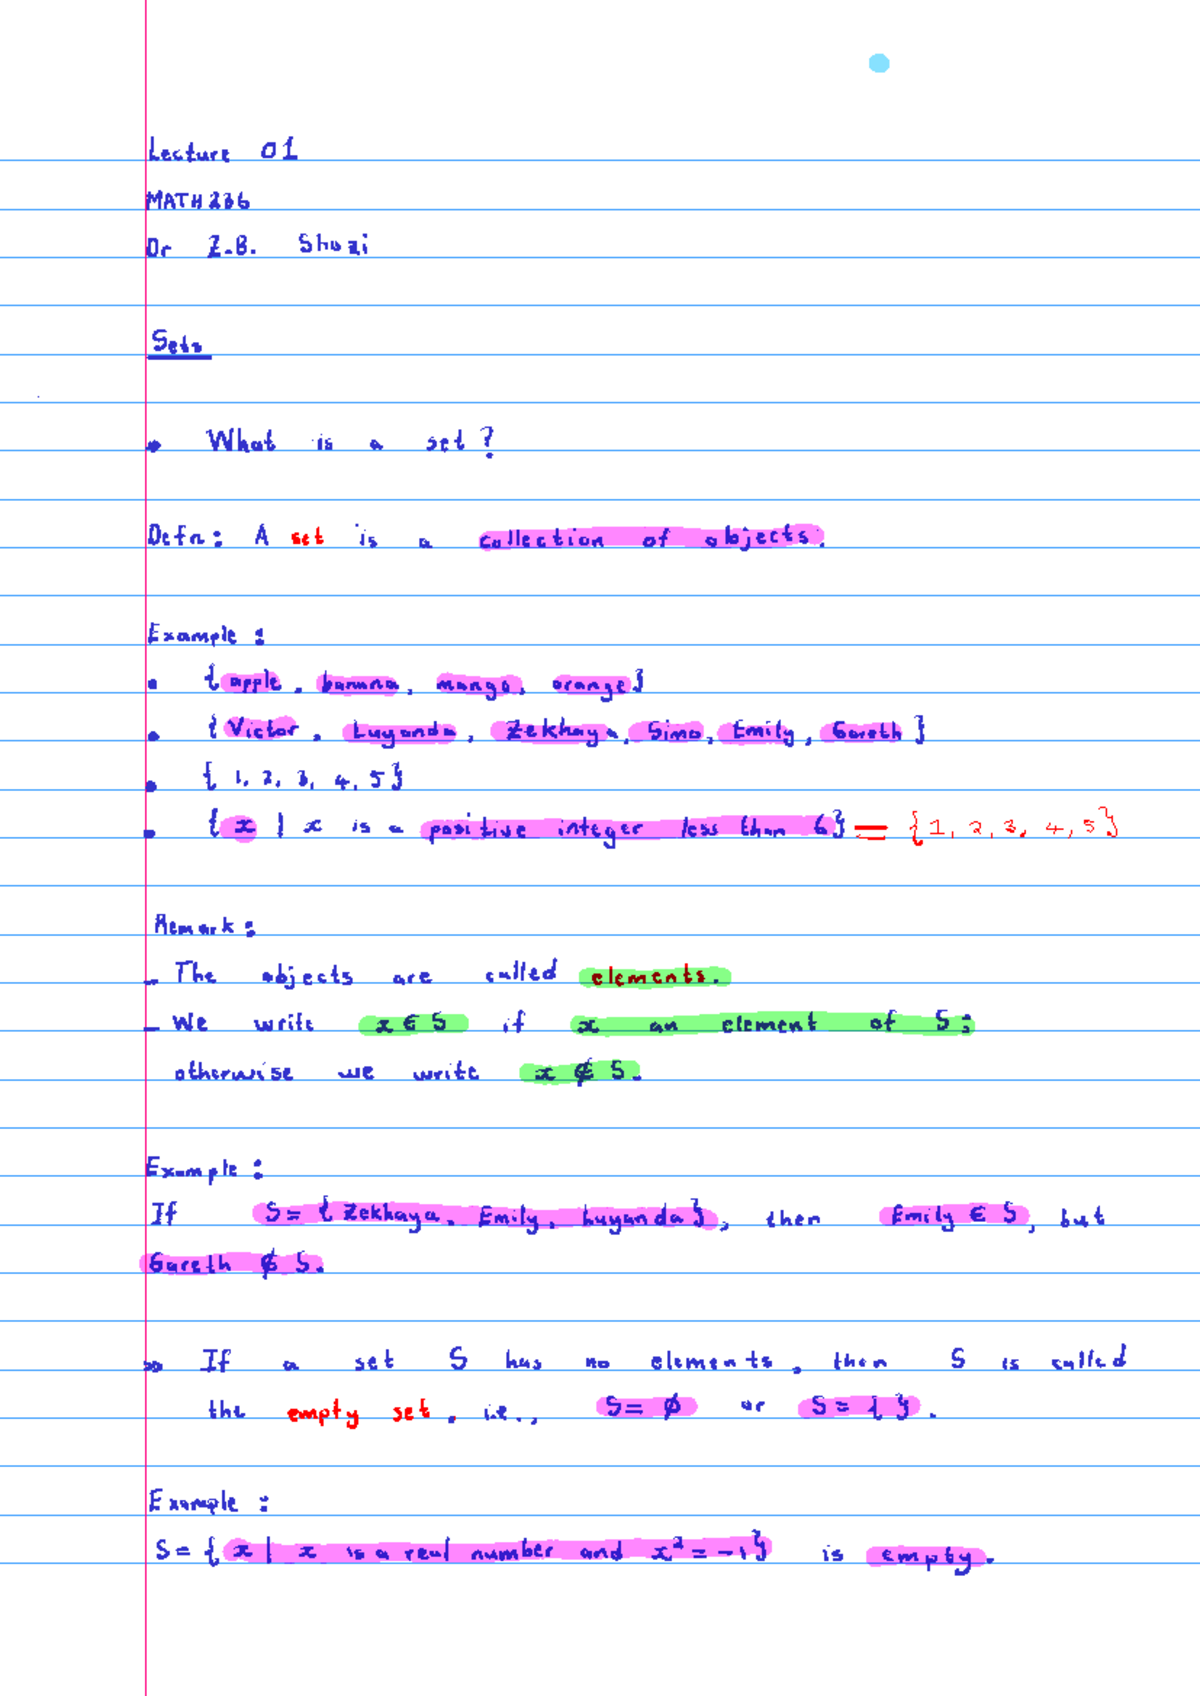 Lecture 01
MATH236
Dr Z.B. Shozi
Sets
• What is a set?
Defn: A set is a collection of objects.
Example:
• {apple, banana, mango, orange}
• {Victor, Luyanda, Zekhaya, Simo, Emily, Gareth}
• {1, 2, 3, 4, 5}
• {x | x is a positive integer less than 6} = {1, 2, 3, 4, 5}
Remark:
- The objects are called elements.
- We write x ∈ S if x an element of S;
otherwise we write x ∉ S.
Example:
If S = {Zekhaya, Emily, Luyanda}, then Emily ∈ S, but
Gareth ∉ S.
• If a set S has no elements, then S is called
the empty set, i.e., S = ∅ or S = { }.
Example:
S = {x | x is a real number and x² = -1} is empty.